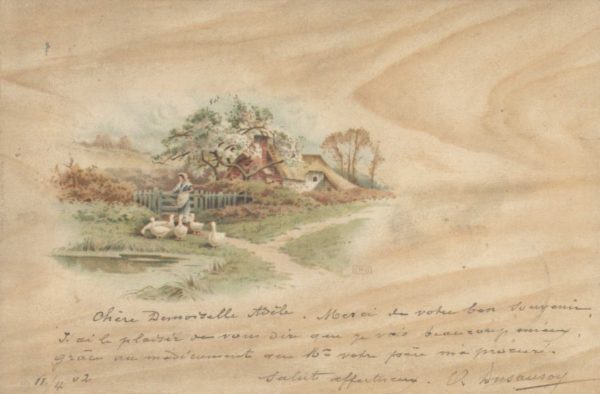 Chère Demoiselle Adèle. Merci de votre bon souvenir,
J'ai le plaisir de vous dire que je vais beaucoup mieux,
grâce au médicament que Mr votre père m'a procuré.
11/4 02 Saluts affectueux.